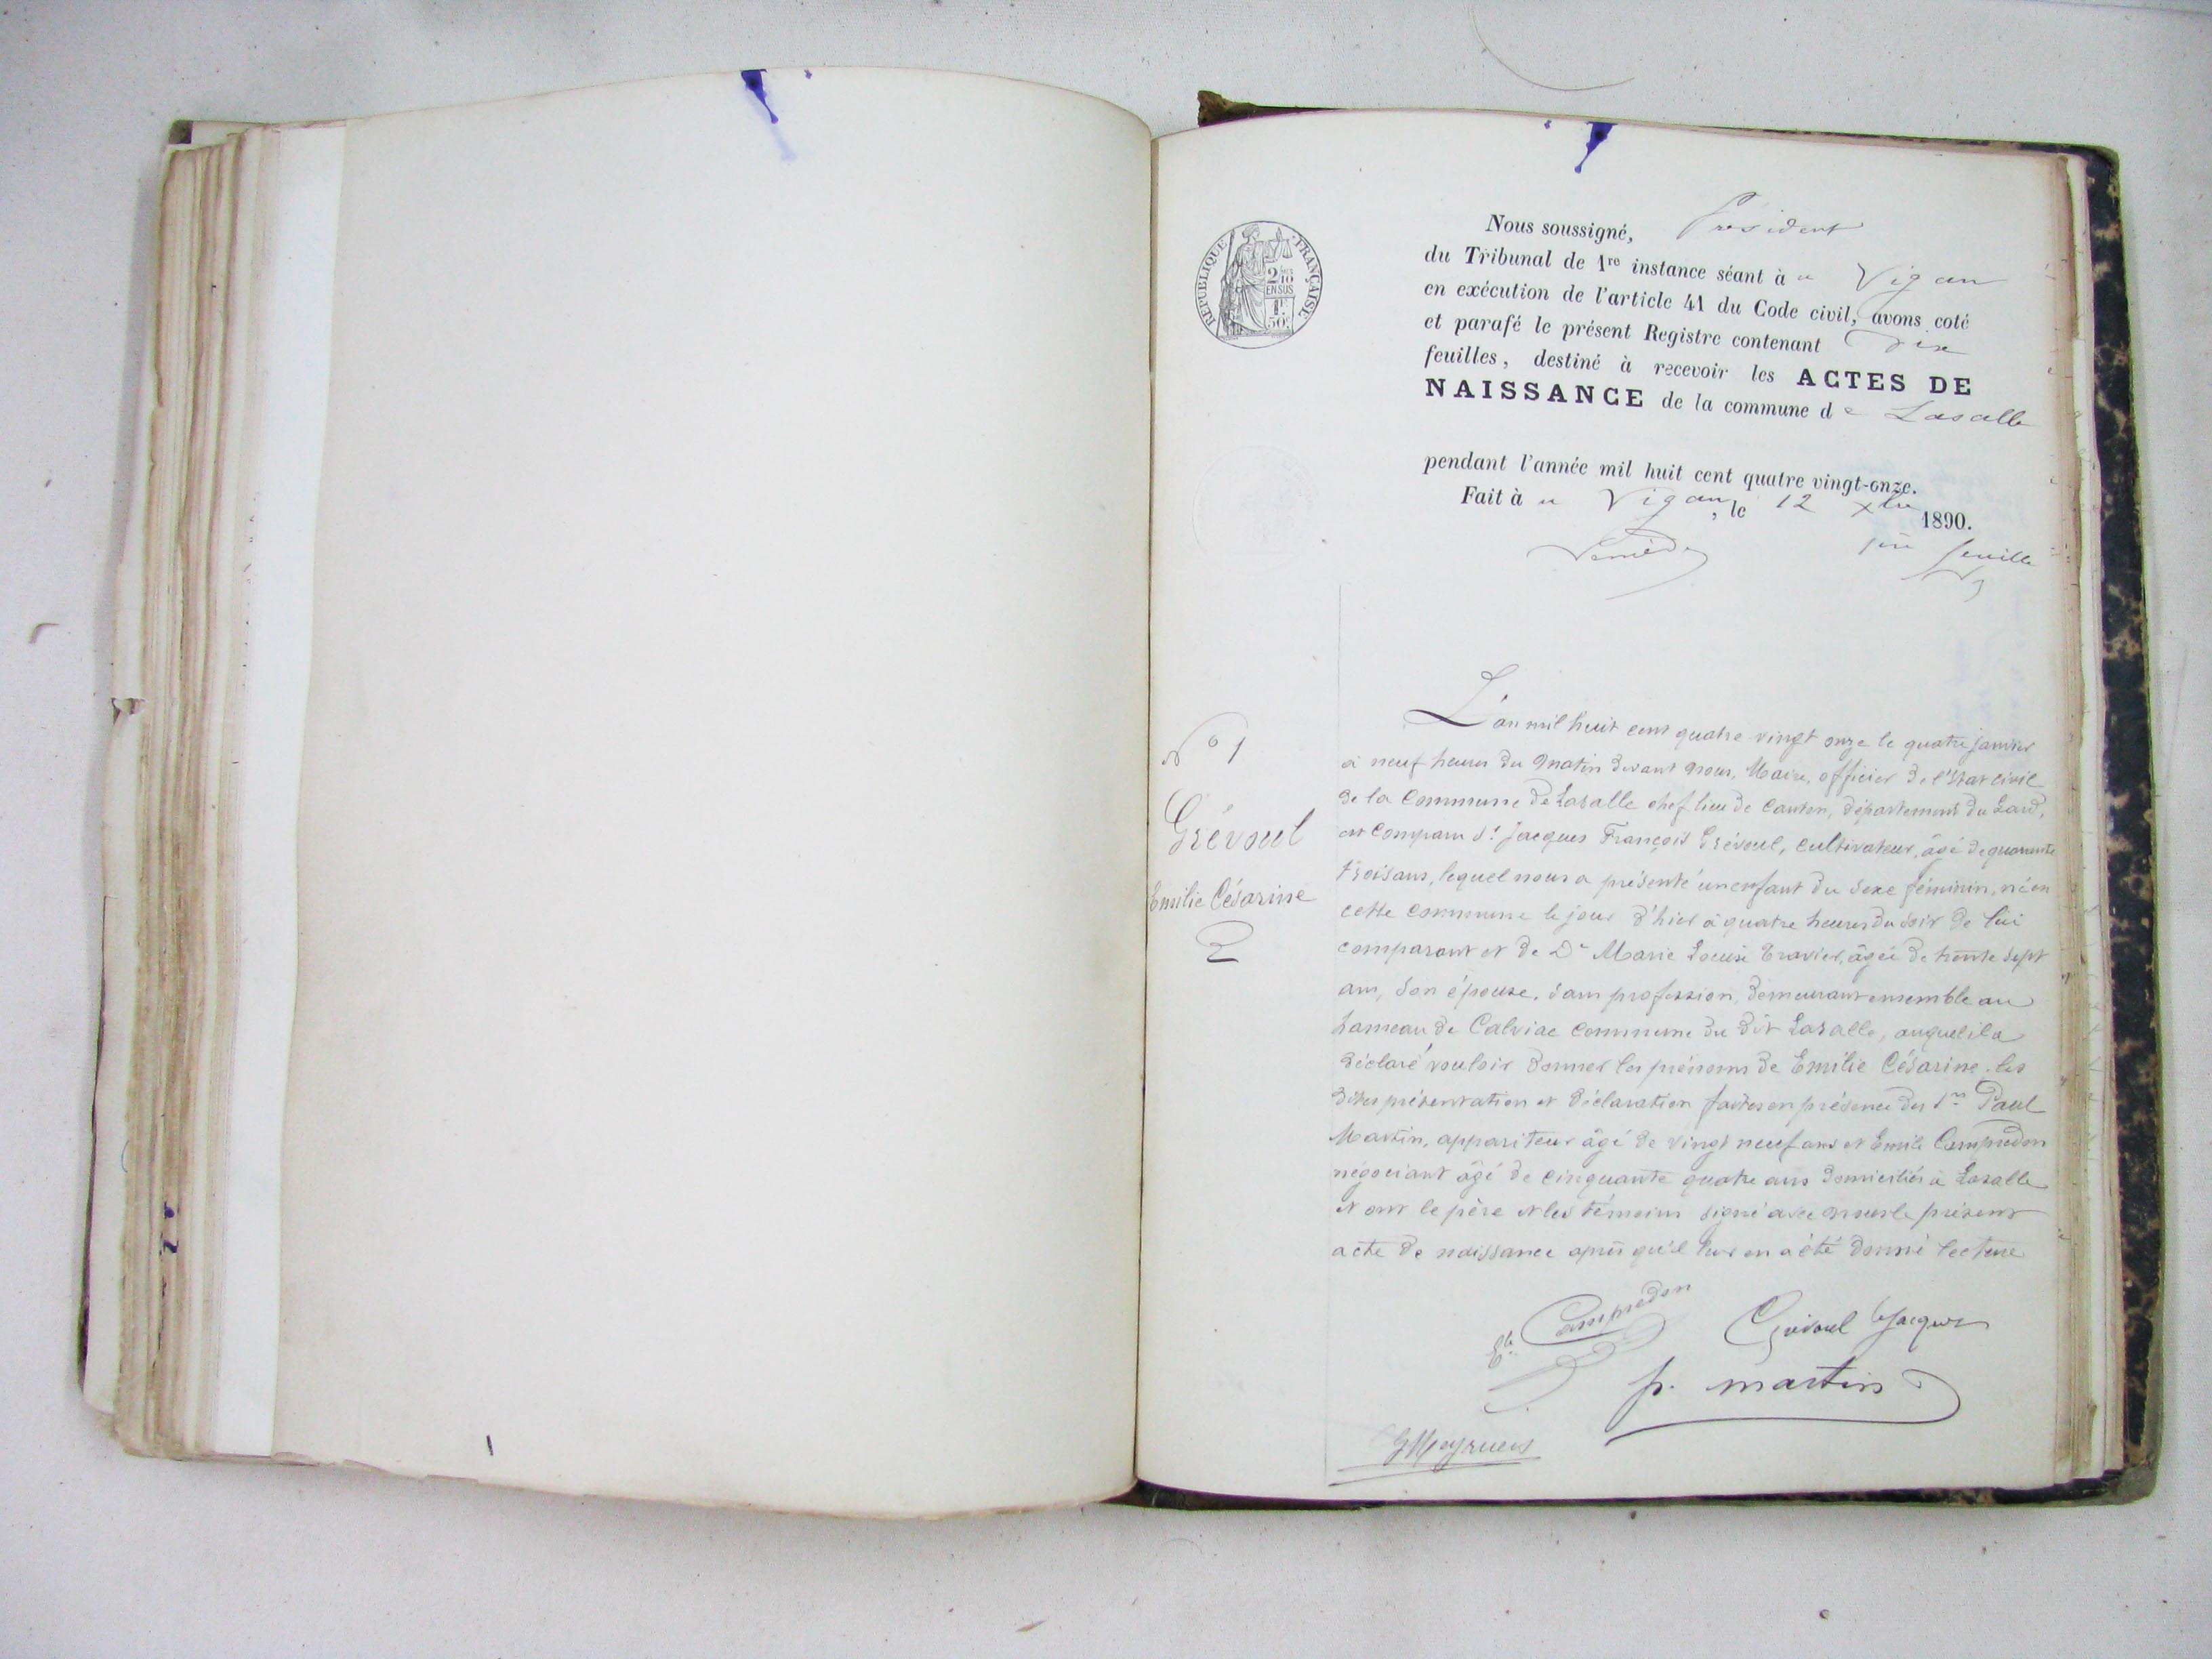 RÉPUBLIQUE FRANÇAISE
2/10
EN SUS
1F
50C
Nous soussigné, Président
du Tribunal de 1re instance séant à u Vigan
en exécution de l'article 41 du Code civil, avons coté
et parafé le présent Registre contenant Dix
feuilles, destiné à recevoir les ACTES DE
NAISSANCE de la commune de Lasalle
pendant l'année mil huit cent quatre vingt-onze.
Fait à u Vigan, le 12 Xbre 1890.
1ère feuille
N° 1
Grévoul
Emilie Césarine
L'an mil huit cent quatre-vingt onze le quatre janvier
à neuf heures du matin devant nous, Maire, officier de l'état civil
de la Commune de Lasalle chef lieu de Canton, département du Gard,
est Comparu Sr Jacques François Grévoul, cultivateur, âgé de quarante
trois ans, lequel nous a présenté un enfant du sexe féminin, né en
cette commune le jour d'hier à quatre heures du soir de lui
comparant et de De Marie Louise Travier, âgée de trente sept
ans, son épouse, sans profession, demeurant ensemble au
hameau de Calviac commune du dit Lasalle, auquel il a
déclaré vouloir donner les prénoms de Emilie Césarine. les
dites présentation et déclaration faites en présence des Srs Paul
Martin, appariteur âgé de vingt neuf ans et Emile Campredon
négociant âgé de cinquante quatre ans domiciliés à Lasalle
et ont le père et les témoins signé avec nous le présent
acte de naissance après qu'il leur en a été donné lecture
Ele Campredon
Grévoul Jacques
p. martin
GMeyrueis